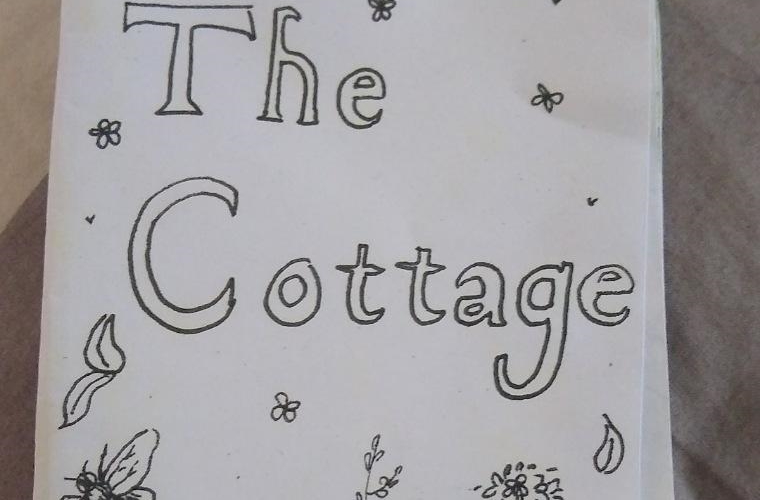 The
Cottage